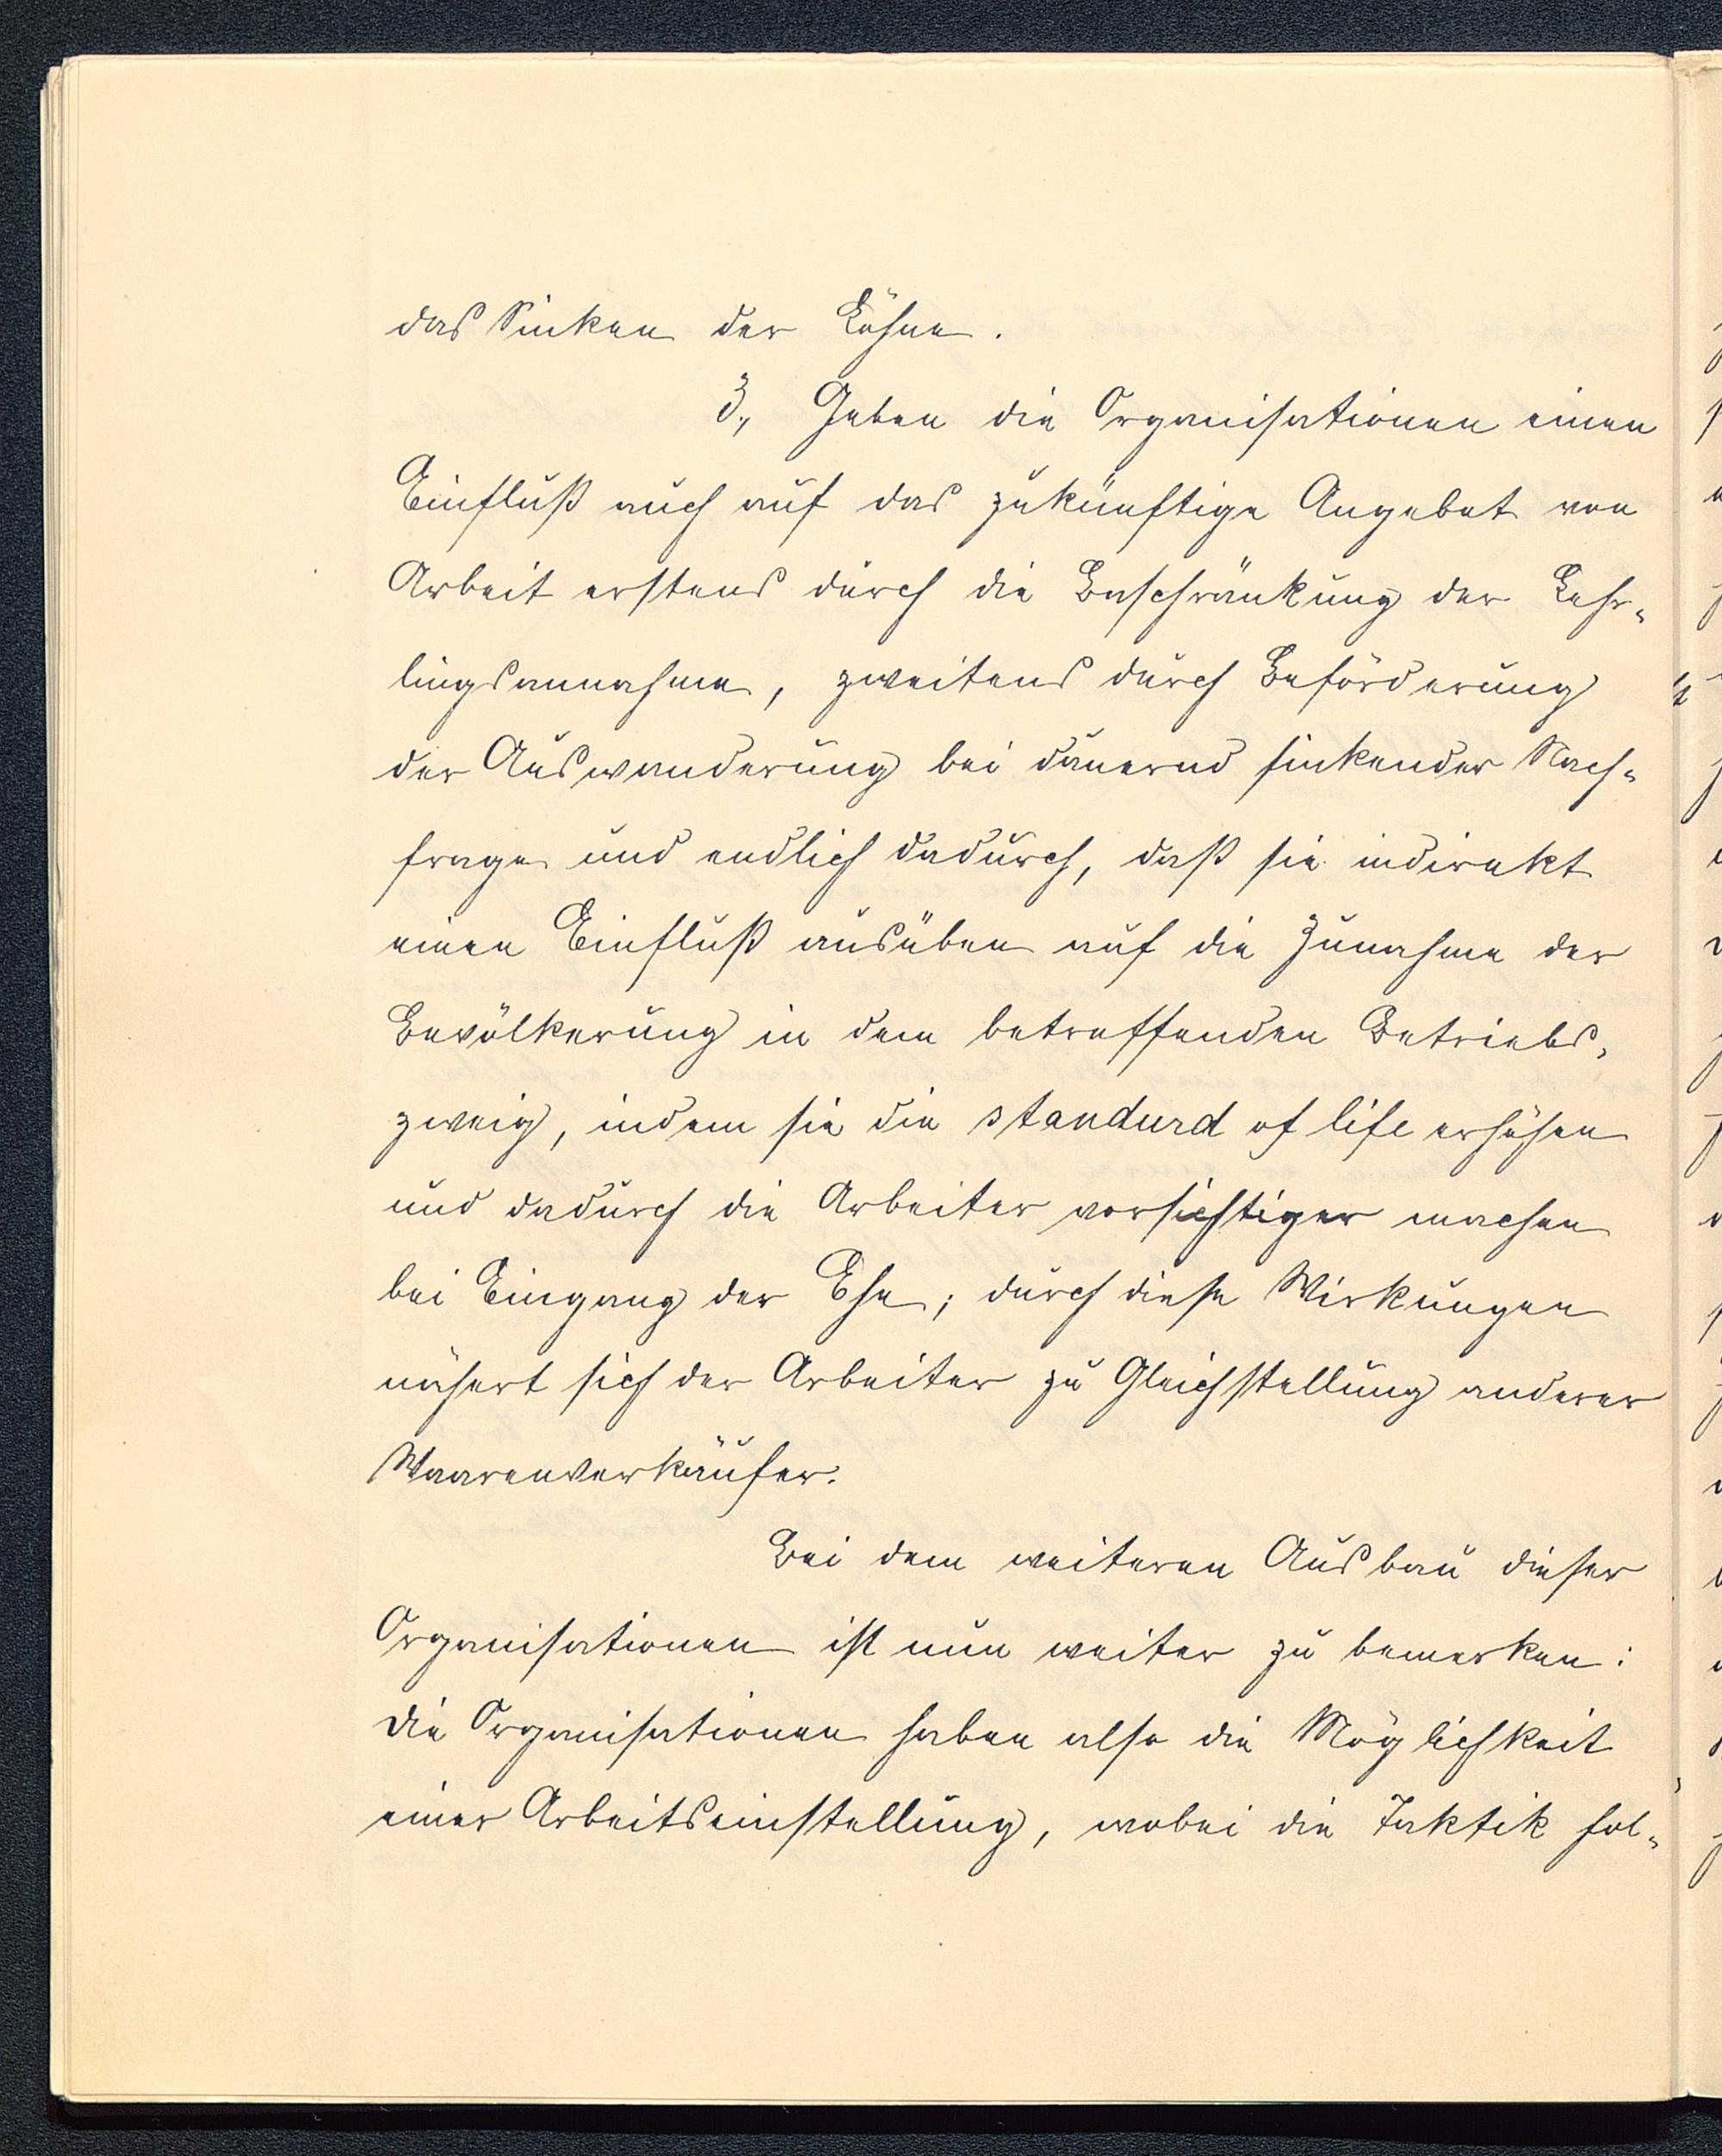 das Sinken der Löhne.
3., Geben die Organisationen einen
Einfluß auch auf das zukünftige Angebot von
Arbeit erstens durch die Beschränkung der Lehr-
lingsannahme, zweitens durch Beförderung
der Auswanderung bei dauernd sinkender Nach-
frage und endlich dadurch, daß sie indirekt
einen Einfluß ausüben auf die Zunahme der
Bevölkerung in dem betreffenden Betriebs-
zweig, indem sie die standurd of life erhöhen
und dadurch die Arbeiter vorsichtiger machen
bei Eingang der Ehe; durch diese Wirkungen
nähert sich der Arbeiter zu Gleichstellung anderer
Waarenverkäufer.
Bei dem weiteren Ausbau dieser
Organisationen ist nun weiter zu bemerken:
die Organisationen haben also die Möglichkeit
einer Arbeitseinstellung, wobei die Taktik fol-